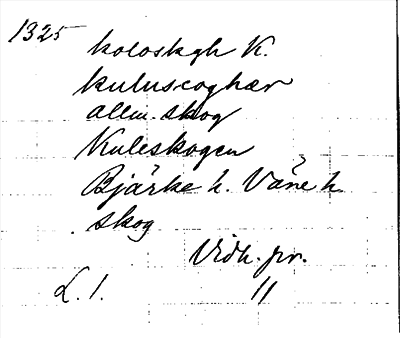 1325
koloskgh K.
kuluscoghær
allm. skog
Kuleskogen
Bjärke h. Väne h
skog
Vidh. pr.
L. 1. 11